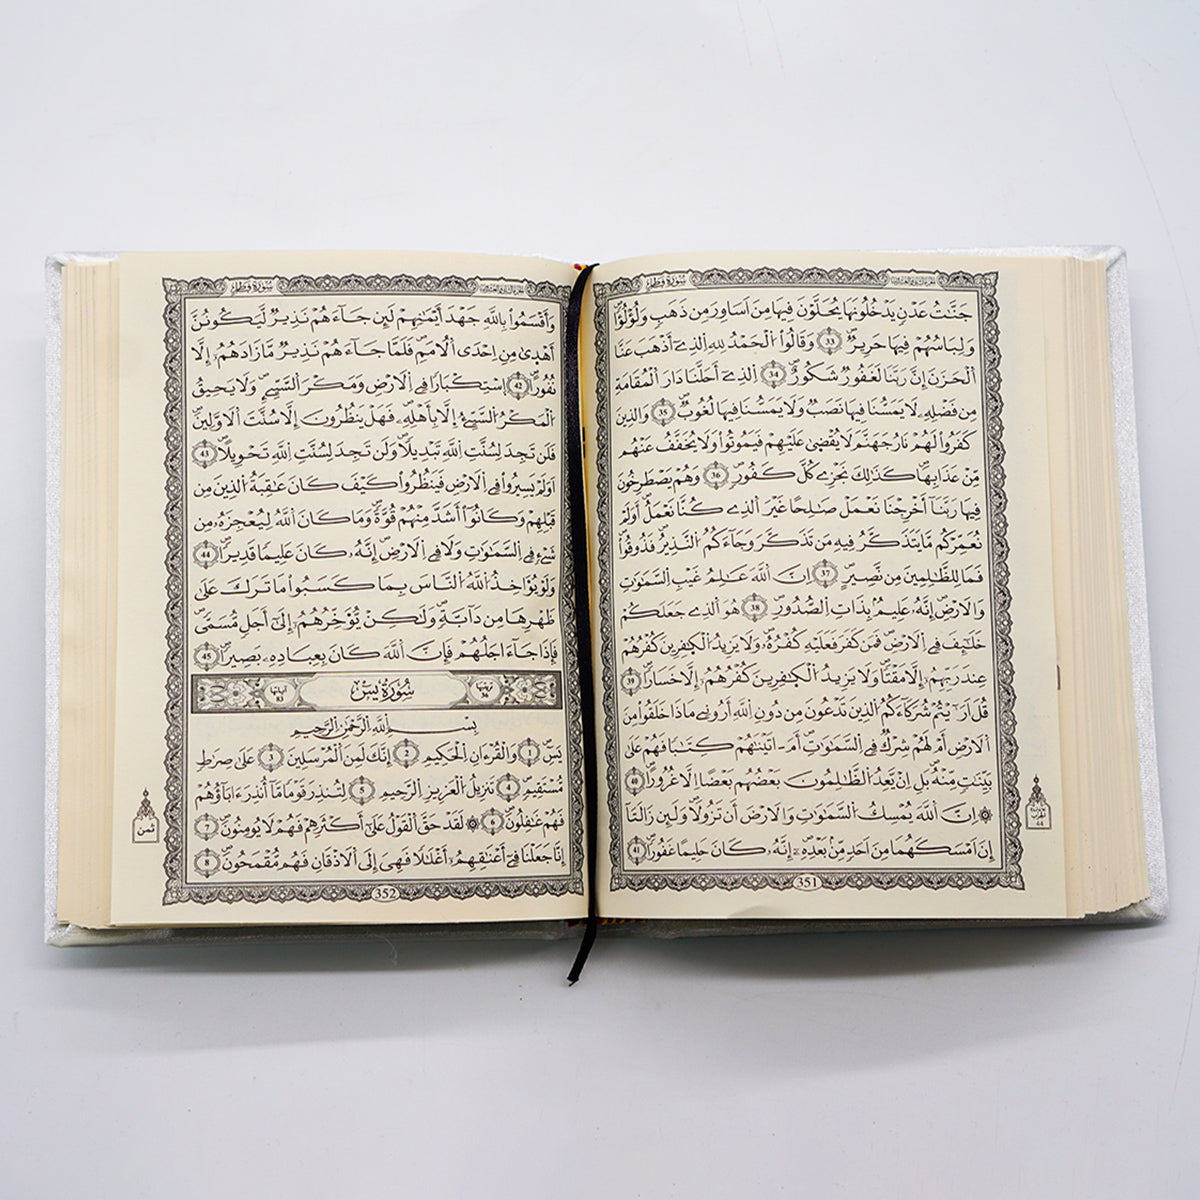 سُورَةُ فَاطِر
جَنَّٰتُ عَدْنٖ يَدْخُلُونَهَا يُحَلَّوْنَ فِيهَا مِنَ اَسَاوِرَ مِن ذَهَبٖ وَلُؤْلُؤاٗ
وَلِبَاسُهُمْ فِيهَا حَرِيرٞۖ 33 وَقَالُوا۟ اُ۬لْحَمْدُ لِلهِ اِ۬لذِےٓ أَذْهَبَ عَنَّا
اَ۬لْحَزَنَ إِنَّ رَبَّنَا لَغَفُورٞ شَكُورٌ 34 اِ۬لذِےٓ أَحَلَّنَا دَارَ اَ۬لْمُقَامَةِ
مِن فَضْلِهِۦ لَا يَمَسُّنَا فِيهَا نَصَبٞ وَلَا يَمَسُّنَا فِيهَا لُغُوبٞۖ 35 وَالذِينَ
كَفَرُوا۟ لَهُمْ نَارُ جَهَنَّمَ لَا يُقْض۪ىٰ عَلَيْهِمْ فَيَمُوتُوا۟ وَلَا يُخَفَّفُ عَنْهُم
مِّنْ عَذَابِهَاۖ كَذَٰلِكَ نَجْزِے كُلَّ كَفُورٖۖ 36 وَهُمْ يَصْطَرِخُونَ
فِيهَا رَبَّنَآ أَخْرِجْنَا نَعْمَلْ صَٰلِحاً غَيْرَ اَ۬لذِے كُنَّا نَعْمَلُۖ أَوَلَمْ
نُعَمِّرْكُم مَّا يَتَذَكَّرُ فِيهِ مَن تَذَكَّرَ وَجَآءَكُمُ اُ۬لنَّذِيرُۖ فَذُوقُوا۟ۖ
فَمَا لِلظَّٰلِمِينَ مِن نَّصِيرٍۖ 37 اِنَّ اَ۬للَّهَ عَٰلِمُ غَيْبِ اِ۬لسَّمَٰوَٰتِ
وَالَارْضِۖ إِنَّهُۥ عَلِيمُۢ بِذَاتِ اِ۬لصُّدُورِۖ 38 هُوَ اَ۬لذِے جَعَلَكُمْ
خَلَٰٓئِفَ فِے اِ۬لَارْضِۖ فَمَن كَفَرَ فَعَلَيْهِ كُفْرُهُۥۖ وَلَا يَزِيدُ اُ۬لْكٰ۪فِرِينَ كُفْرُهُمْ
عِندَ رَبِّهِمُۥٓ إِلَّا مَقْتاٗۖ وَلَا يَزِيدُ اُ۬لْكٰ۪فِرِينَ كُفْرُهُمُۥٓ إِلَّا خَسَاراٗۖ 39
قُلَ اَرَٰٓيْتُمْ شُرَكَآءَكُمُ اُ۬لذِينَ تَدْعُونَ مِن دُونِ اِ۬للَّهِ أَرُونِے مَاذَا خَلَقُوا۟ مِنَ
اَ۬لَارْضِ أَمْ لَهُمْ شِرْكٞ فِے اِ۬لسَّمَٰوَٰتِۖ أَمَ اٰتَيْنَٰهُمْ كِتَٰباٗ فَهُمْ عَلَىٰ
بَيِّنَٰتٖ مِّنْهُۖ بَلِ اِنْ يَّعِدُ اُ۬لظَّٰلِمُونَ بَعْضُهُم بَعْضاً اِلَّا غُرُوراًۖ 40
۞ اِنَّ اَ۬للَّهَ يُمْسِكُ اُ۬لسَّمَٰوَٰتِ وَالَارْضَ أَن تَزُولَاۖ وَلَئِن زَالَتَآ
إِنَ اَمْسَكَهُمَا مِنَ اَحَدٖ مِّنۢ بَعْدِهِۦٓۖ إِنَّهُۥ كَانَ حَلِيماً غَفُوراٗۖ 41
351
سُورَةُ فَاطِر
وَأَقْسَمُوا۟ بِاللَّهِ جَهْدَ أَيْمَٰنِهِمْ لَئِن جَآءَهُمْ نَذِيرٞ لَّيَكُونُنَّ
أَهْد۪ىٰ مِنِ اِحْدَى اَ۬لُامَمِۖ فَلَمَّا جَآءَهُمْ نَذِيرٞ مَّا زَادَهُمُۥٓ إِلَّا
نُفُوراً 42 اِ۪سْتِكْبَاراٗ فِے اِ۬لَارْضِ وَمَكْرَ اَ۬لسَّيِّےِٕۖ وَلَا يَحِيقُ
اُ۬لْمَكْرُ اُ۬لسَّيِّۓُ اِلَّا بِأَهْلِهِۦۖ فَهَلْ يَنظُرُونَ إِلَّا سُنَّتَ اَ۬لَاوَّلِينَۖ
فَلَن تَجِدَ لِسُنَّتِ اِ۬للَّهِ تَبْدِيلاٗۖ وَلَن تَجِدَ لِسُنَّتِ اِ۬للَّهِ تَحْوِيلاًۖ 43
اَوَلَمْ يَسِيرُوا۟ فِے اِ۬لَارْضِ فَيَنظُرُوا۟ كَيْفَ كَانَ عَٰقِبَةُ اُ۬لذِينَ مِن
قَبْلِهِمْ وَكَانُوٓا۟ أَشَدَّ مِنْهُمْ قُوَّةٗۖ وَمَا كَانَ اَ۬للَّهُ لِيُعْجِزَهُۥ مِن
شَےْءٖ فِے اِ۬لسَّمَٰوَٰتِ وَلَا فِے اِ۬لَارْضِۖ إِنَّهُۥ كَانَ عَلِيماٗ قَدِيراٗۖ 44
وَلَوْ يُؤَاخِذُ اُ۬للَّهُ اُ۬لنَّاسَ بِمَا كَسَبُوا۟ مَا تَرَكَ عَلَىٰ
ظَهْرِهَا مِن دَآبَّةٖۖ وَلَٰكِنْ يُّؤَخِّرُهُمُۥٓ إِلَىٰٓ أَجَلٖ مُّسَمّىٗۖ
فَإِذَا جَآءَ اجَلُهُمْ فَإِنَّ اَ۬للَّهَ كَانَ بِعِبَادِهِۦ بَصِيراٗۖ 45
ترتيبها 36 سُورَةُ يسٓ آياتها 83
بِسْمِ اِ۬للَّهِ اِ۬لرَّحْمَٰنِ اِ۬لرَّحِيمِ
يَسٓۖ 1 وَالْقُرْءَانِ اِ۬لْحَكِيمِ 2 إِنَّكَ لَمِنَ اَ۬لْمُرْسَلِينَ 3 عَلَىٰ صِرَٰطٖ
مُّسْتَقِيمٖۖ 4 تَنزِيلُ اُ۬لْعَزِيزِ اِ۬لرَّحِيمِ 5 لِتُنذِرَ قَوْماٗ مَّآ أُنذِرَ ءَابَآؤُهُمْ
فَهُمْ غَٰفِلُونَۖ 6 ۞ لَقَدْ حَقَّ اَ۬لْقَوْلُ عَلَىٰٓ أَكْثَرِهِمْ فَهُمْ لَا يُومِنُونَۖ 7
إِنَّا جَعَلْنَا فِےٓ أَعْنَٰقِهِمُۥٓ أَغْلَٰلاٗ فَهِيَ إِلَى اَ۬لَاذْقَانِ فَهُم مُّقْمَحُونَۖ 8
ثمن
352